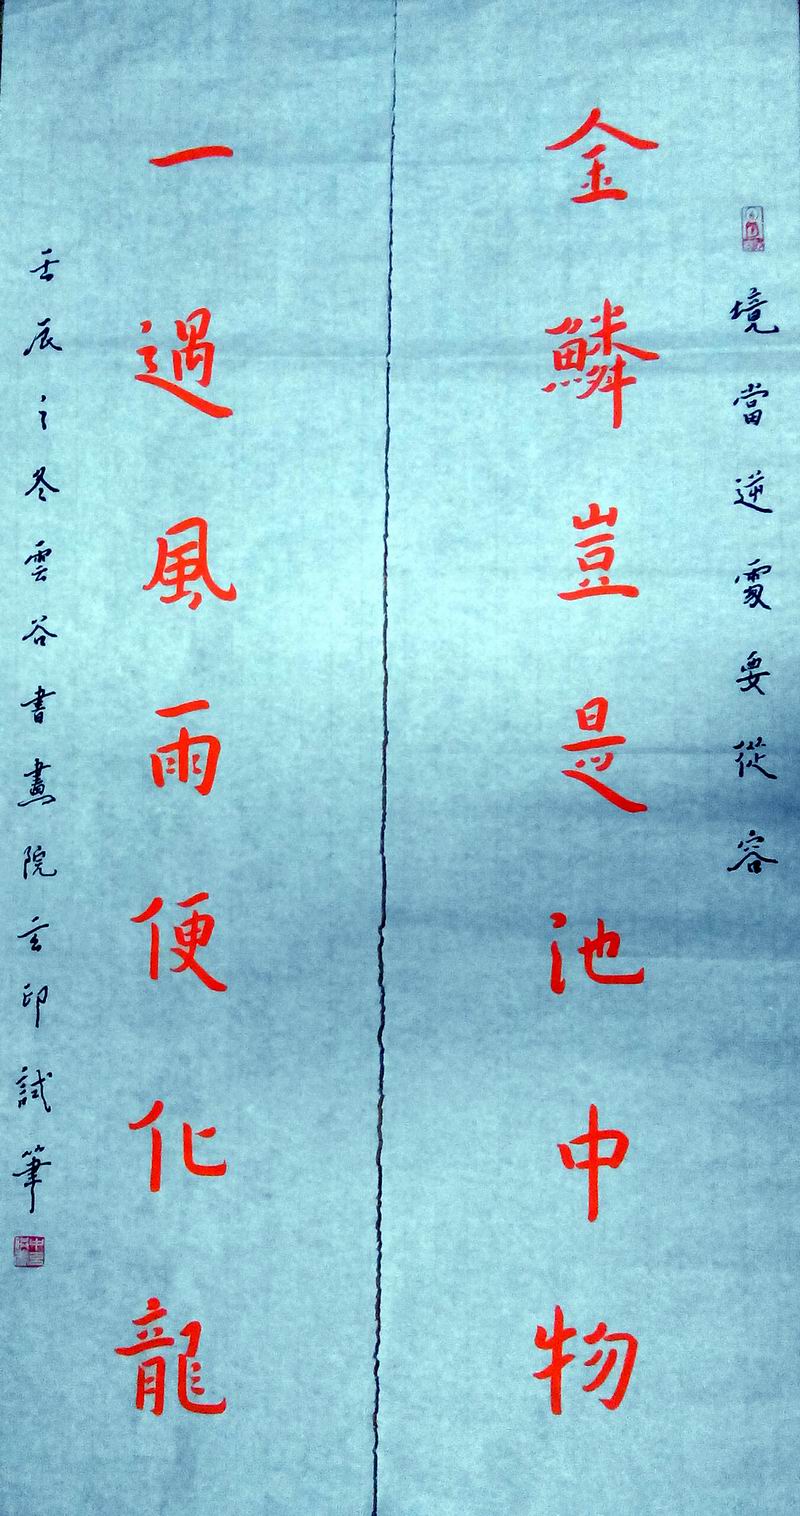 境當逆處要從容
金鱗豈是池中物
一遇風雨便化龍
壬辰之冬雲谷書畫院玄印試筆